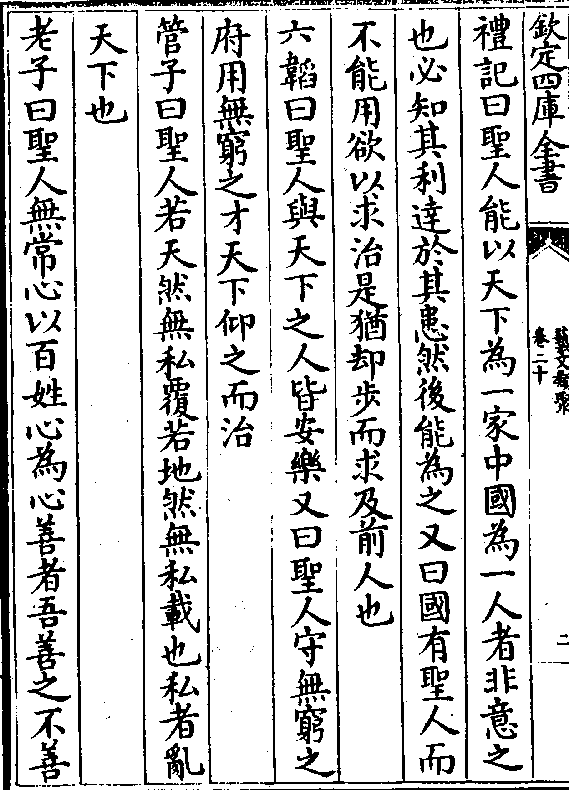 欽定四庫全書
藝文類聚
卷二十
二
禮記曰聖人能以天下為一家中國為一人者非意之
也必知其利達於其患然後能為之又曰國有聖人而
不能用欲以求治是猶却步而求及前人也
六韜曰聖人與天下之人皆安樂又曰聖人守無窮之
府用無窮之才天下仰之而治
管子曰聖人若天然無私覆若地然無私載也私者亂
天下也
老子曰聖人無常心以百姓心為心善者吾善之不善